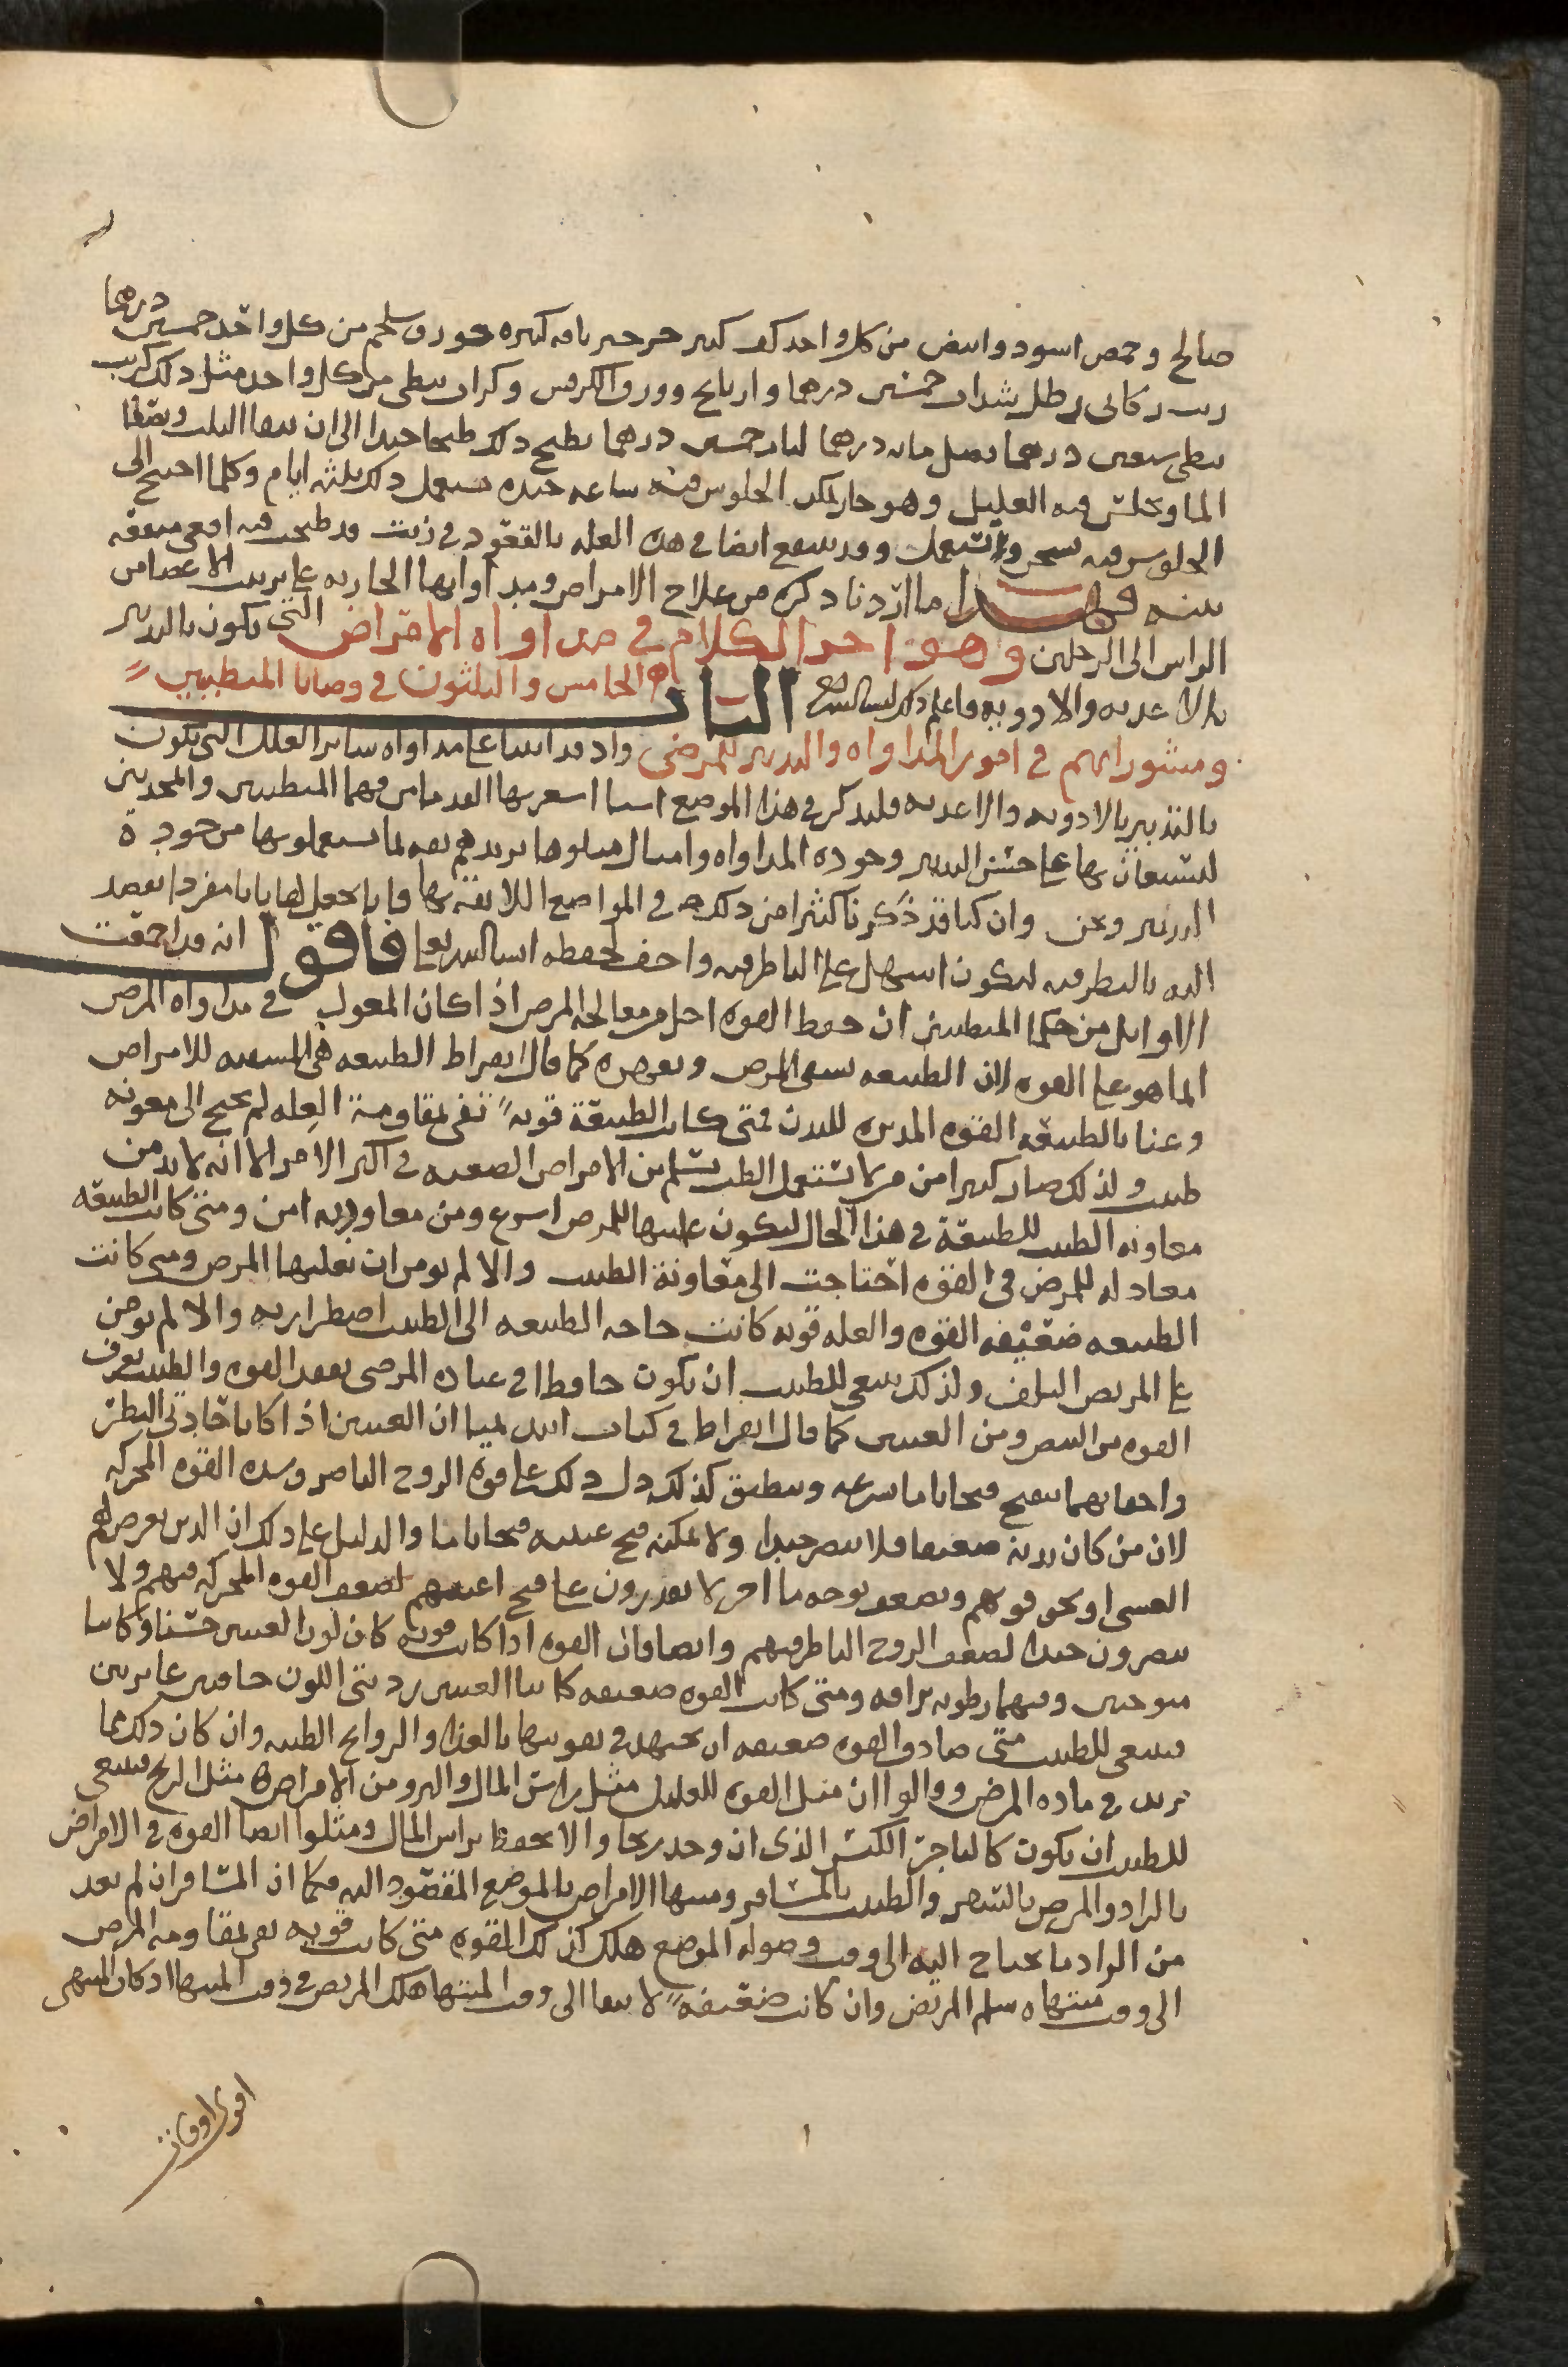 صالح وحمص اسود وابيض من كل واحد كف كبير جرجير باقه كبيره ورق سلجم من كل واحد خمسين درهما
زيت ركابى رطل شذاب خمسين درهما وورق الكرفس وكراث نبطى من كل واحد مثل ذلك كرنب
نبطى سبعين درهما بصل مايه درهما لبان خمسين درهما يطبخ ذلك طبخا جيدا الى ان يبقا الثلث ويصفا
الما ويجلس فيه العليل وهو حار يمكن الجلوس فيه ساعه جيده يستعمل ذلك ثلثه ايام وكلما احتيج الى
الجلوس فيه سخن واستعمل وقد ينتفع ايضا فى هذه العله بالقعود فى زيت قد طبخت فيه افعى منفعه
بينه فهذا ما اردنا ذكره من علاج الامراض ومداواتها الجاريه على ترتيب الاعضا من
الراس الى الرجلين وهو اخر الكلام فى مداواه الامراض التى يكون بالتدبير
بالاغذيه والادويه فاعلم ذلك الباب الخامس والثلثون فى وصايا المتطببين
ومشوراتهم فى امور المداواه والتدبير للمرضى واذ قد اتينا على مداواه ساير العلل التى تكون
بالتدبير بالادويه والاغذيه فلنذكر فى هذا الموضع اشيا اشعر بها القدما من فهما المتطببين والمحدثين
ليستعان بها على حسن التدبير وجوده المداواه وامثال مثلوها تزيدهم ثقه لما يستعملونها من جودة
التدبير ونحن وان كنا قد ذكرنا كثيرا من ذلك فى المواضع اللايقه بها فانا نجعل لها بابا مفردا نقصد
اليه بالنظر فيه ليكون اسهل على الناظر فيه واخف لحفظه فاقول انه قد اجمعت
الاوايل من حكما المتطببين ان حفظ القوه اجل من معالجه المرض اذ كان المعول فى مداواه المرض
انما هو على القوه لان الطبيعه تشفى المرض كما قال ابقراط الطبيعه هى المشفيه للامراض
وعنا بالطبيعه القوه المدبره للبدن فمتى كانت الطبيعة قويه تفى بمقاومة العله لم يحتج الى معونه
طبيب ولذلك صار كثيرا من من لا يستعمل الطب يسلم من الامراض الصعبه فى اكثر الامر الا انه لا بد من
معاونه الطبيب للطبيعة فى هذا الحال ليكون غلبتها للمرض اسرع ومن معاودته امن ومتى كانت الطبيعه
معادله للمرض فى القوه احتاجت الى معاونة الطبيب والا لم يومن ان يغلبها المرض ومتى كانت
الطبيعه ضعيفه القوه والعله قويه كانت حاجه الطبيعه الى الطبيب اضطراريه والا لم يومن
على المريض التلف ولذلك ينبغى للطبيب ان يكون حافظا فى عياده المرضى تفقد القوه والطبيب يعرف
القوه من النبض ومن العينين كما قال ابقراط فى كتاب ابيديميا ان العينين اذا كانا حادتى النظر
واجفانهما تنفتح فتحا تاما بسرعه وينطبق كذلك دل ذلك على قوه الروح الباصر وشده القوه المحركه
لان من كان بدنه ضعيفا فلا يبصر جيدا ولا يمكنه فتح عينيه فتحا تاما والدليل على ذلك ان الذين يعرض لهم
الغشى او تخور قوتهم وتضعف بوجه ما اخر لا يقدرون على فتح اعينهم لضعف القوه المحركه فيهم ولا
يبصرون جيدا لضعف الروح الناظر فيهم وايضا فان القوه اذا كانت قويه كان لون العينين حسنا وكانتا
ومتى كانت القوه ضعيفه كانتا العينين رديتى اللون جافتين غايرتين
فينبغى للطبيب متى صادف القوه ضعيفه ان يجتهد فى تقويتها بالغذا والروايح الطيبه وان كان ذلك مما
يزيد فى ماده المرض وقالوا ان مثل القوه للعليل مثل راس المال والبرو من الامراض مثل الربح فينبغى
للطبيب ان يكون كالتاجر الكيس الذى ان وجد ربحا والا يحفظ براس المال ومثلوا ايضا القوه فى الامراض
بالزاد والمرض بالسفر والطبيب بالمسافر ومنتها الامراض بالموضع المقصود اليه فكما ان المسافر ان لم يعد
من الزاد ما يحتاج اليه الى وقت وصوله الموضع هلك كذلك القوه متى كانت قويه تفى بمقاومه المرض
الى وقت منتهاه سلم المريض وان كانت ضعيفه لا تبقا الى وقت المنتها هلك المريض فى وقت المنتها اذ كان المنتهى
اقوى اوقات